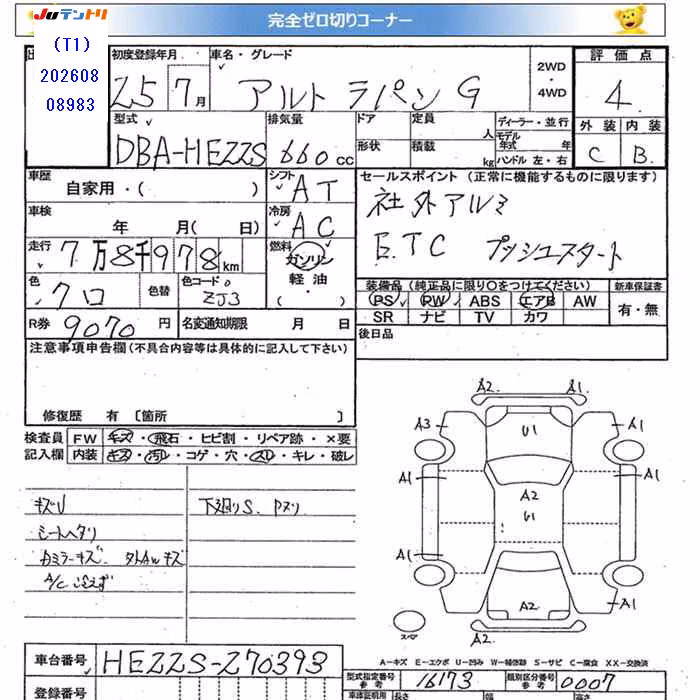 JUテントリ
完全ゼロ切りコーナー
(T1)
202608
08983
初度登録年月 車名・グレード 2WD ・ 4WD 評価点
25 7月 アルト ラパン G 4
型式 排気量 ドア 定員 人 ディーラー・並行 外装 内装
DBA-HE22S 660cc 形状 積載 kg モデル年式 年式 ハンドル 左・右 C B
車歴 シフト セールスポイント (正常に機能するものに限ります)
自家用・( ) AT 社外アルミ
車検 年 月( 日) 冷房 AC ETC プッシュスタート
走行 7万8千978km 燃料 ガソリン 軽油 ( )
色 クロ 色替 色コード ZJ3
装備品 (純正品に限り○をつけてください) 新車保証書
PS PW ABS エアB AW 有・無
SR ナビ TV カワ
R券 9070円 名変通知期限 月 日 後日品
注意事項申告欄(不具合内容等は具体的に記入して下さい)
修復歴 有 〔箇所 〕
検査員 FW キズ・飛石・ヒビ割・リペア跡・×要
記入欄 内装 キズ・汚レ・コゲ・穴・スレ・キレ・破レ
キズU 下廻りS、Pヌリ
シートヘタリ
Rミラーキズ タイAWキズ
A/C 冷えず
A2 A1
A3 U1 A1
A1 A2 A1
U1
A1
A2 A1
スペア A2
A-キズ E-エクボ U-凹み W-補修跡 S-サビ C-腐食 XX-交換済
車台番号 HE22S-270393
型式指定番号 参考 16173 類別区分番号 参考 0007
登録番号 車庫証明用 長さ 幅 高さ